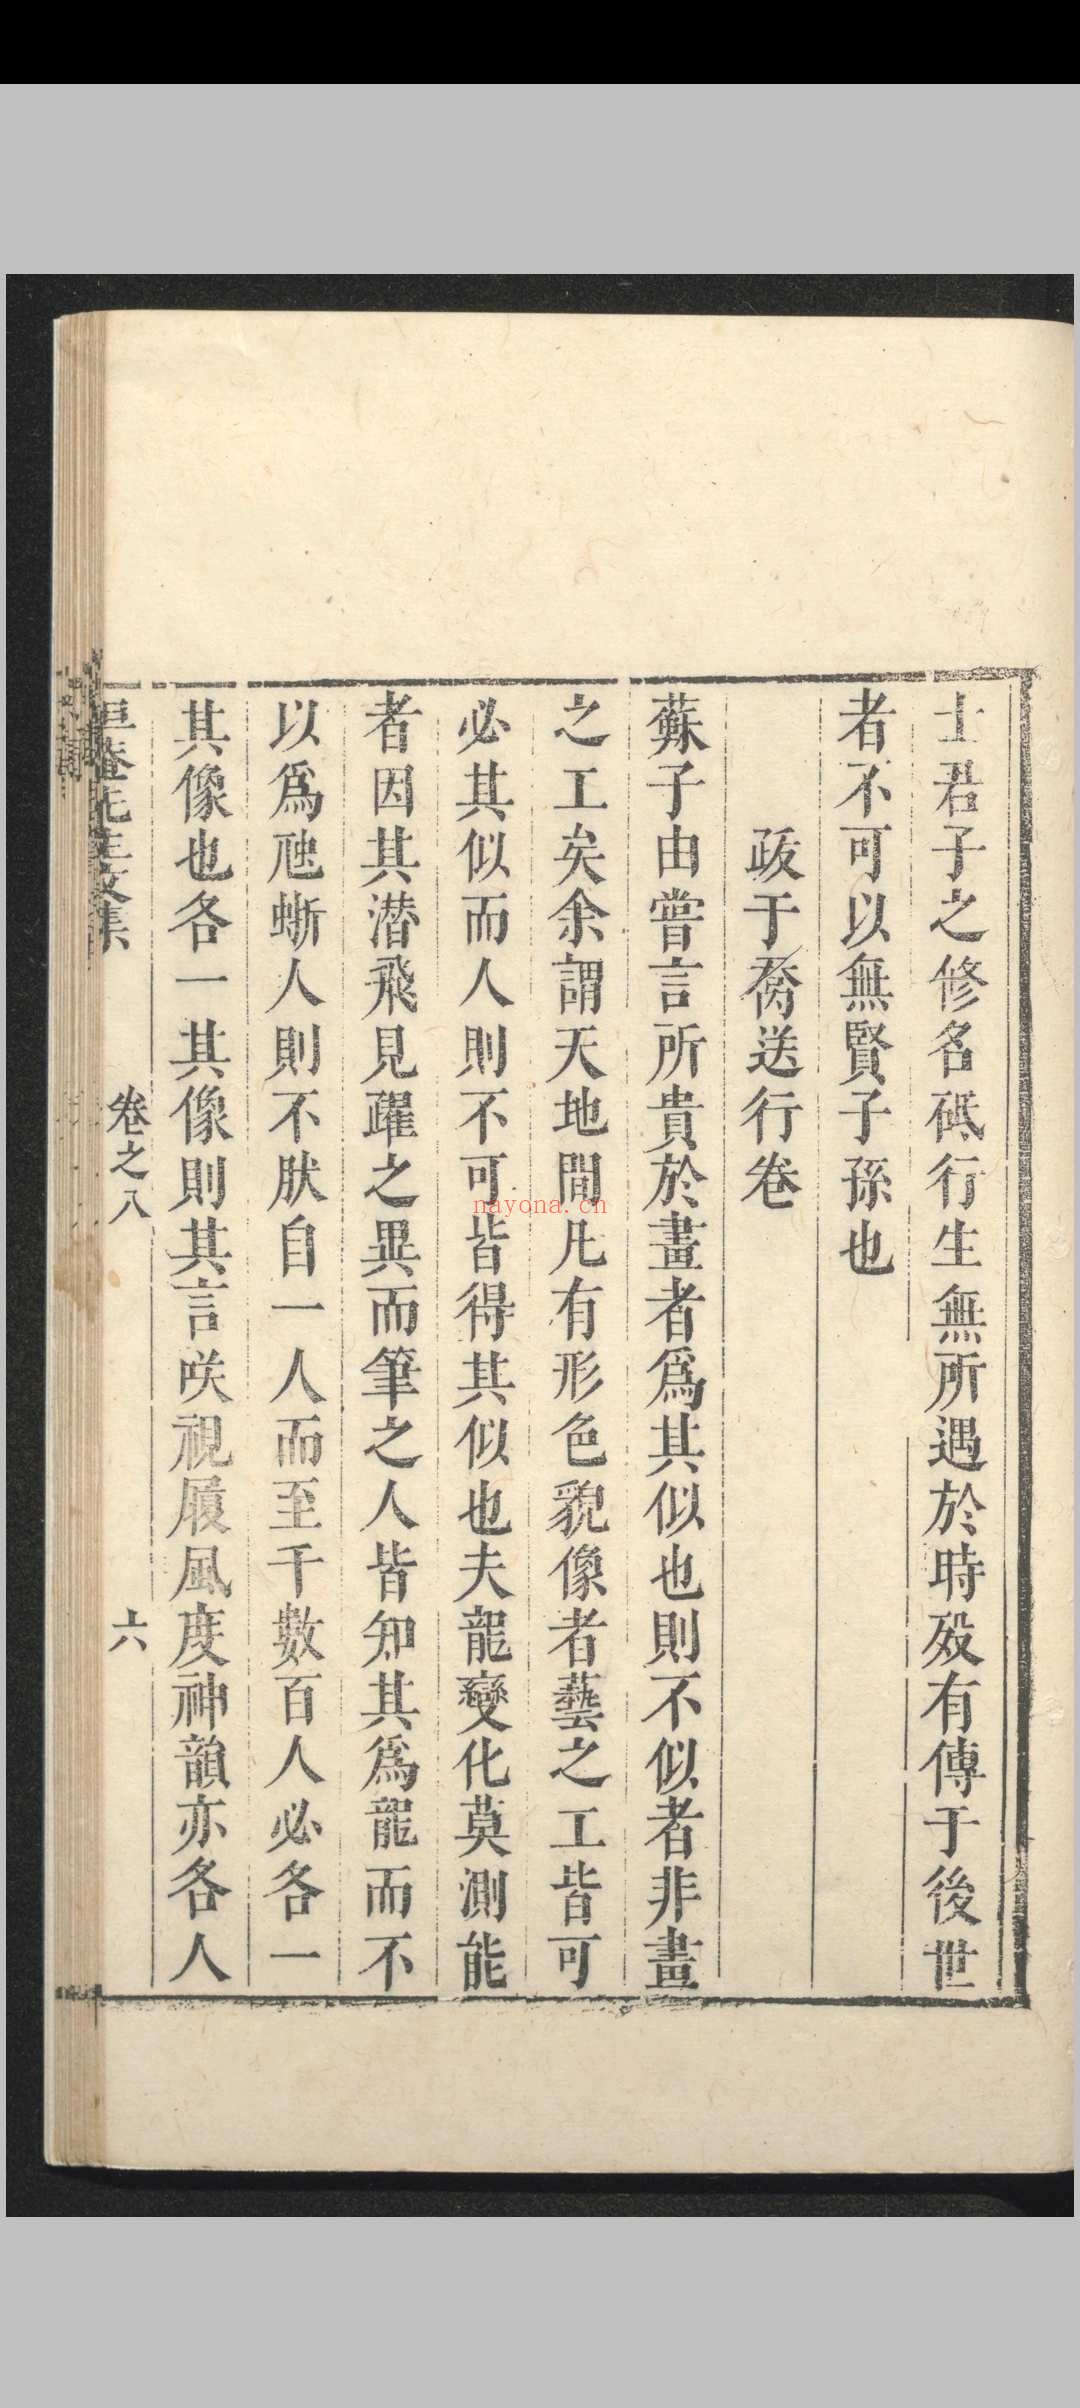 士君子之修名砥行生無所遇於時歿有傳于後世
者不可以無賢子孫也
跋于喬送行卷
蘇子由嘗言所貴於畫者爲其似也則不似者非畫
之工矣余謂天地間凡有形色貌像者藝之工皆可
必其似而人則不可皆得其似也夫龍變化莫測能
者因其潛飛見躍之異而筆之人皆知其爲龍而不
以爲虵蜥人則不肰自一人而至千數百人必各一
其像也各一其像則其言咲視履風度神韻亦各人
庵先生文集
卷之八
六
nayona.cn